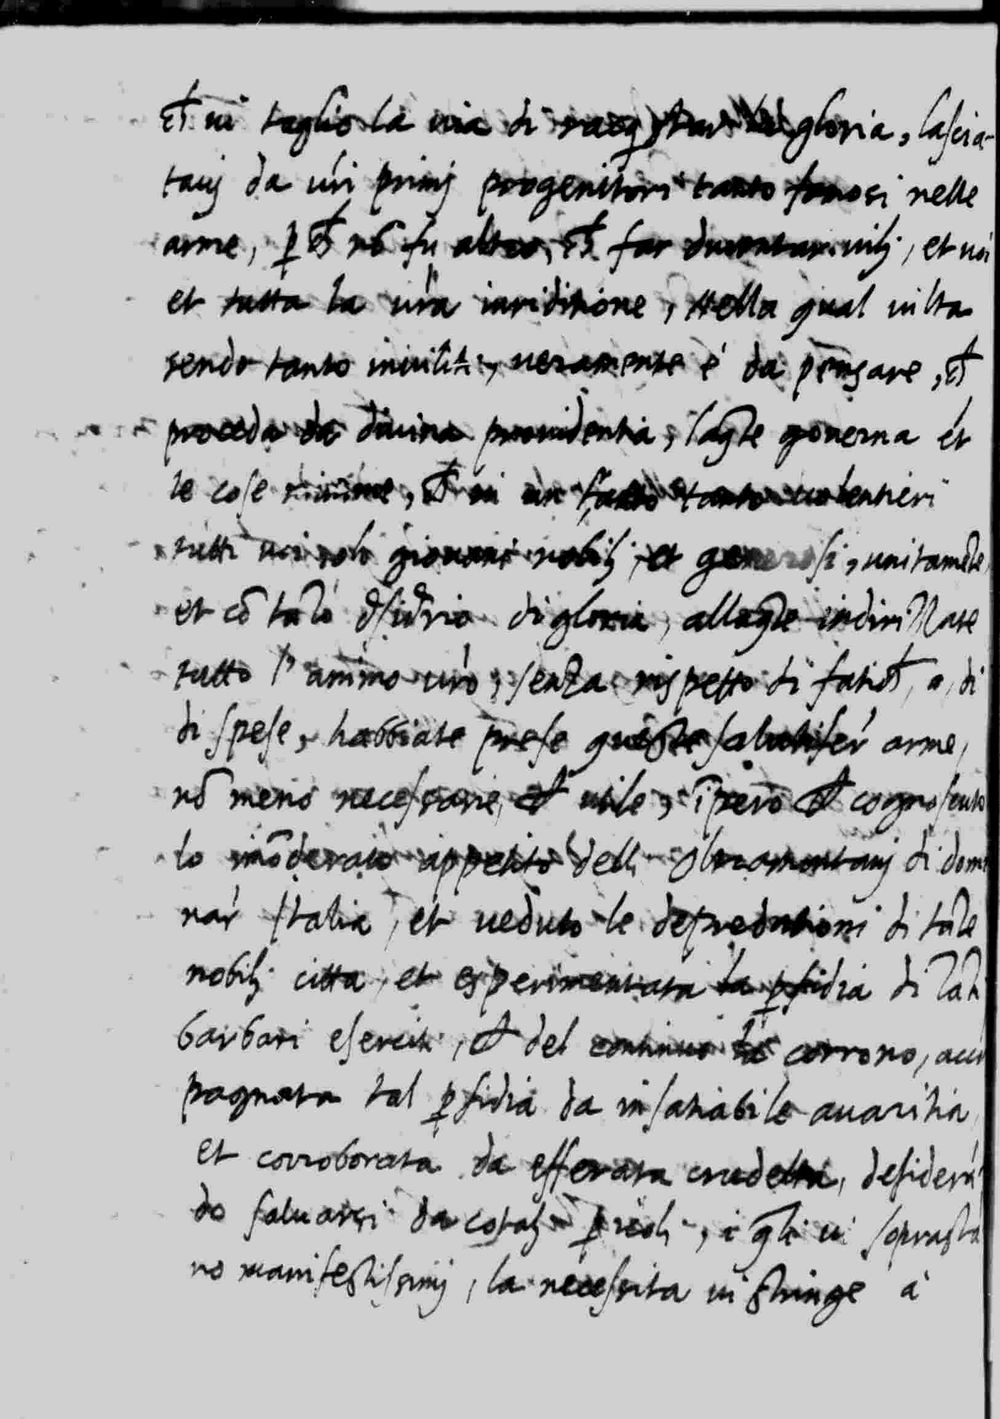 ch̄ vi taglio la via di racq̄star la gloria, lascia-
tavj da vr̄i primj progenitori tanto famosi nelle
arme, ꝑ ch̄ nō fu altro, ch̄ far diventar vilj, et voi
et tutta la vr̄a iuriditione, Nella qual vilta
sendo tanto inviliti, veramente é da pensare, ch̄
proceda da divina providentia, laq̄le governa et
le cose minime, ch̄ in un tanto volentieri
tutti voi giovani nobilj, et generosi, unitamēte
et cō tāto desiderio di gloria, allaq̄le indirizzate
tutto l'animo vr̄o, senza rispetto di fatich̄, o, di
di spese, habbiate prese queste salutifer' arme,
nō meno necessarie, ch̄ utile, īpero ch̄ cognosciuto
lo imōderato appetito delli oltramontanj di domi
nar' Italia, et veduto le depredationi di tāte
nobilj citta, et esperimentata la ꝑfidia di tāti
barbari eserciti, ch̄ del continuo la corrono, acco
pagnata tal ꝑfidia da insatiabile avaritia,
et corroborata da efferata crudelta, desiderā
do salvarsi da cotalj ꝑicoli, i q̄li vi soprasta
no manifestissimj, la necessita vi stringe á